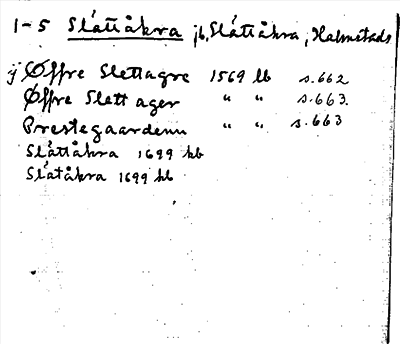 1-5 Slättåkra jb, Slättåkra, Halmstads
ij Øffre Slettagre 1569 lb s.662
Øffre Slett ager " " s.663.
Prestegaardenn " " s.663
Slättåkra 1699 kb
Slätåkra 1699 kb